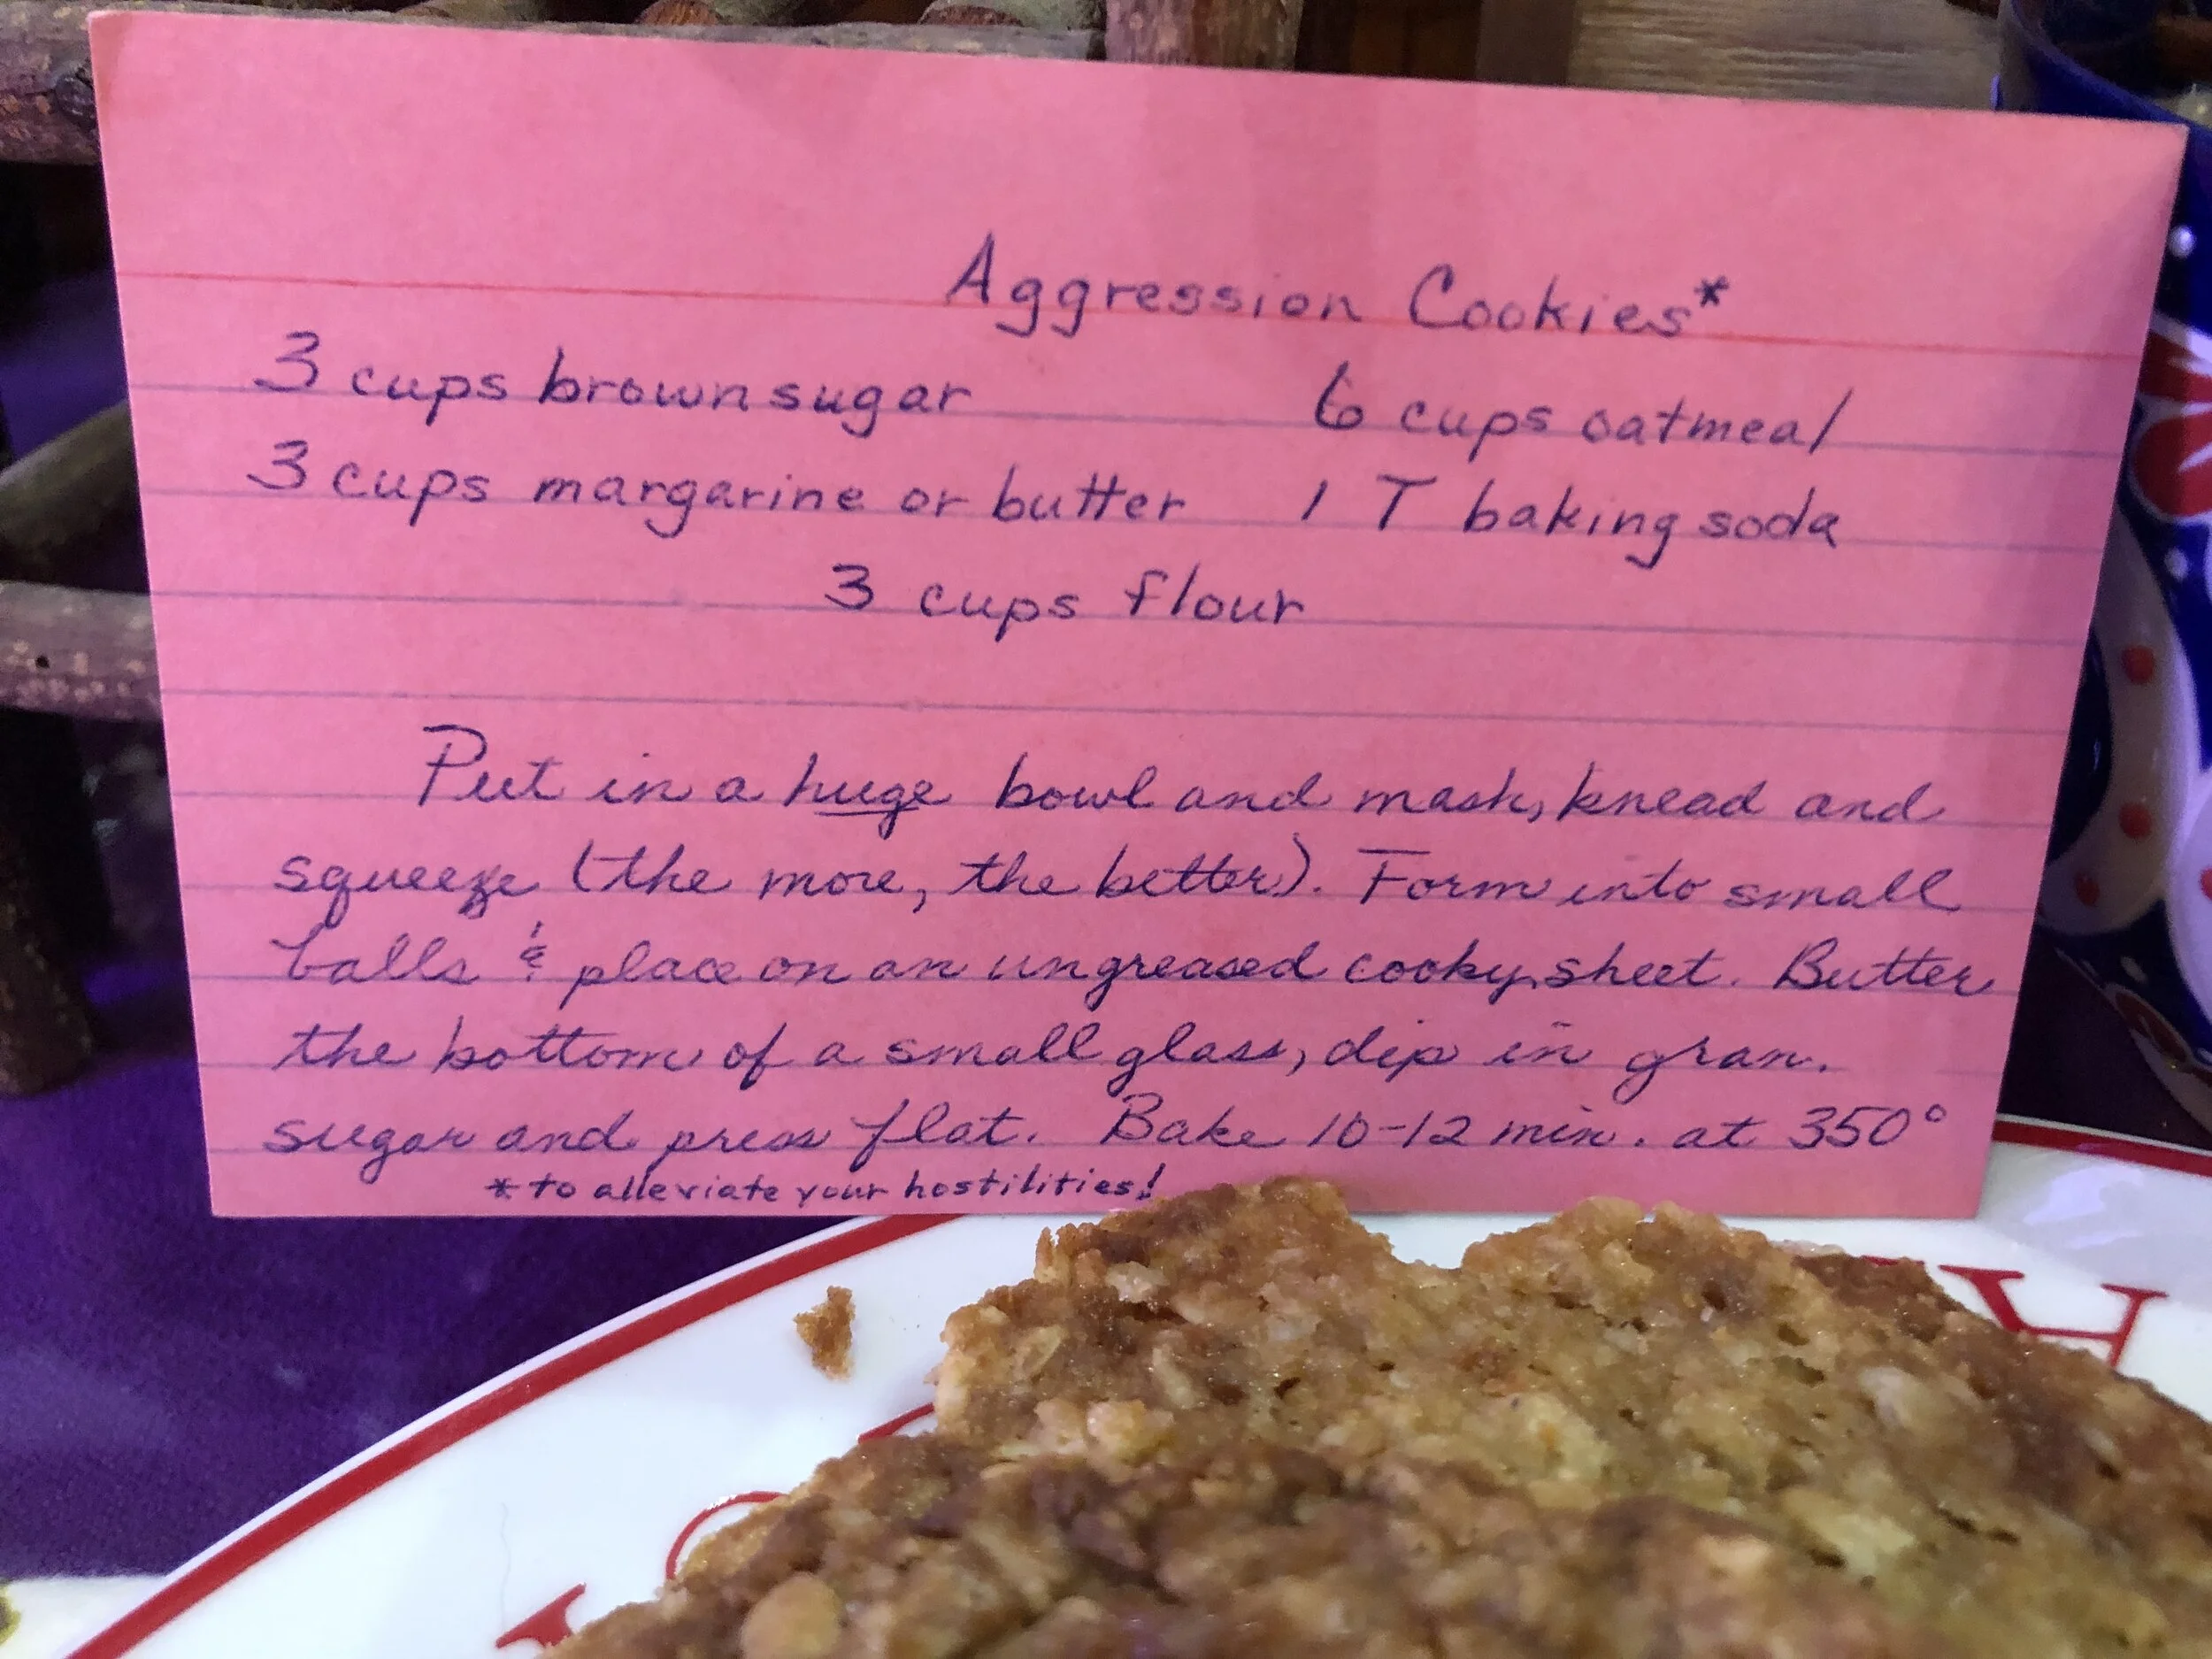 Aggression Cookies*
3 cups brown sugar 6 cups oatmeal
3 cups margarine or butter 1 T baking soda
3 cups flour
Put in a huge bowl and mash, knead and
squeeze (the more, the better). Form into small
balls & place on an ungreased cooky sheet. Butter
the bottom of a small glass, dip in gran.
sugar and press flat. Bake 10-12 min. at 350°
*to alleviate your hostilities!